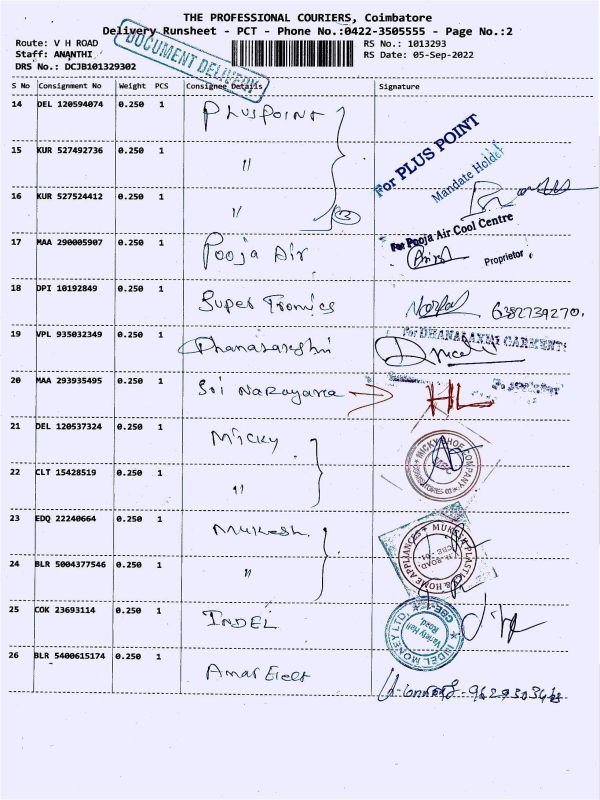 THE PROFESSIONAL COURIERS, Coimbatore
Delivery Runsheet - PCT - Phone No.:0422-3505555 - Page No.:2
Route: V H ROAD
Staff: ANANTHI
DRS No.: DCJB101329302
DOCUMENT DELIVERY
RS No.: 1013293
RS Date: 05-Sep-2022
S No Consignment No Weight PCS Consignee Details Signature
14 DEL 120594074 0.250 1 PLUSPOINT
For PLUS POINT
Mandate Holder
15 KUR 527492736 0.250 1 "
16 KUR 527524412 0.250 1 " 3
17 MAA 290005907 0.250 1 Pooja Air
For Pooja Air Cool Centre
Proprietor
18 DPI 10192849 0.250 1 Super Tronics 6382739270.
19 VPL 935032349 0.250 1 Dhanalakshmi
For DHANALAXMI GARMENTS
20 MAA 293935495 0.250 1 Sri Narayana HL
21 DEL 120537324 0.250 1 Micky
MICKY SHOE COMPANY
22 CLT 15428519 0.250 1 "
23 EDQ 22240664 0.250 1 Mukesh
MUKESH PLASTIC & HOME APPLIANCES
24 BLR 5004377546 0.250 1 "
25 COK 23693114 0.250 1 INDEL
INDEL MONEY LTD. CBE-1
Variety Hall Road,
26 BLR 5400615174 0.250 1 Amar Elect